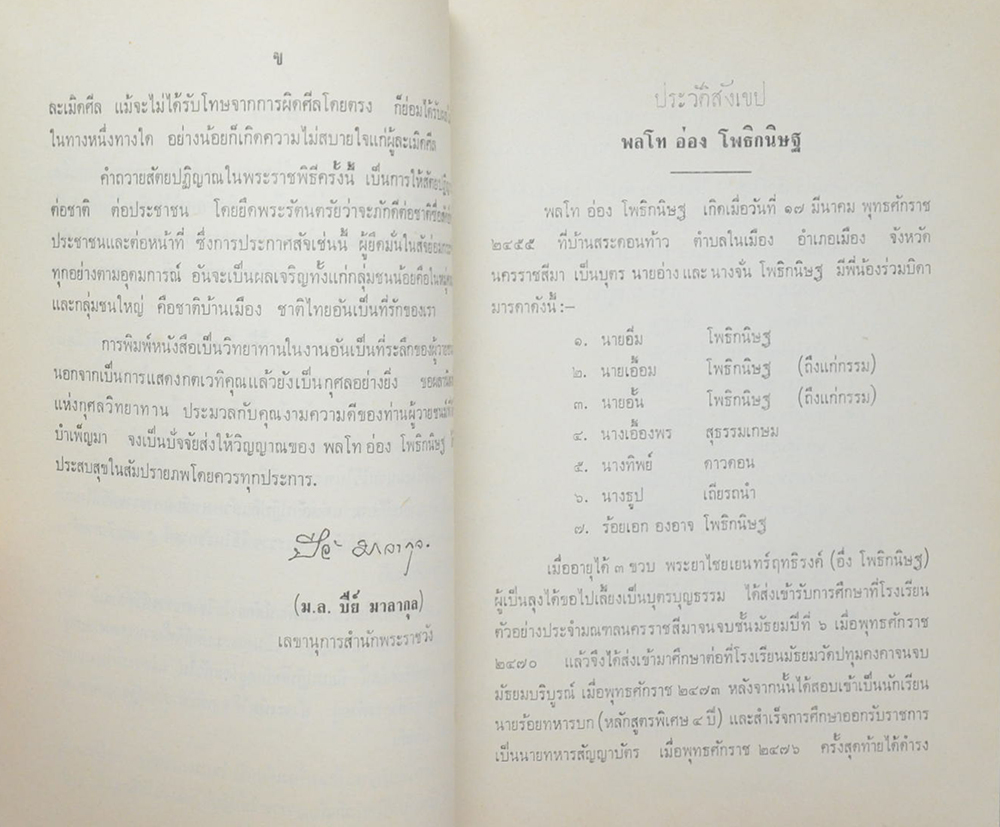 ข
ละเมิดศีล แม้จะไม่ได้รับโทษจากการผิดศีลโดยตรง ก็ย่อมได้รับ
ในทางหนึ่งทางใด อย่างน้อยก็เกิดความไม่สบายใจแก่ผู้ละเมิดศีล
คำถวายสัตยปฏิญาณในพระราชพิธีครั้งนี้ เป็นการให้
ต่อชาติ ต่อประชาชน โดยยึดพระรัตนตรัยว่าจะภักดีต่อชาติ
ประชาชนและต่อหน้าที่ ซึ่งการประกาศสัจเช่นนี้ ผู้ยึดมั่นในสัจ
ทุกอย่างตามอุดมการณ์ อันจะเป็นผลเจริญทั้งแก่กลุ่มชนน้อยคือใน
และกลุ่มชนใหญ่ คือชาติบ้านเมือง ชาติไทยอันเป็นที่รักของเรา
การพิมพ์หนังสือเป็นวิทยาทานในงานอันเป็นที่ระลึกของ
นอกจากเป็นการแสดงกตเวทิคุณแล้วยังเป็นกุศลอย่างยิ่ง
แห่งกุศลวิทยาทาน ประมวลกับคุณงามความดีของท่านผู้วายชนม์
บำเพ็ญมา จงเป็นปัจจัยส่งให้วิญญาณของ พลโท อ่อง โพธิกนิษฐ
ประสบสุขในสัมปรายภพโดยควรทุกประการ.
(ม.ล. ปีย์ มาลากุล)
เลขานุการสำนักพระราชวัง
ประวัติสังเขป
พลโท อ่อง โพธิกนิษฐ
พลโท อ่อง โพธิกนิษฐ เกิดเมื่อวันที่ ๑๗ มีนาคม พุทธศักราช
๒๔๕๕ ที่บ้านสระดอนท้าว ตำบลในเมือง อำเภอเมือง จังหวัด
นครราชสีมา เป็นบุตร นายอ่าง และ นางจั่น โพธิกนิษฐ มีพี่น้องร่วมบิดา
มารดาดังนี้ :–
๑. นายอึ่ม โพธิกนิษฐ
๒. นายเอื้อม โพธิกนิษฐ (ถึงแก่กรรม)
๓. นายอั้น โพธิกนิษฐ (ถึงแก่กรรม)
๔. นางเอื้องพร สุธรรมเกษม
๕. นางทิพย์ ดาวดอน
๖. นางธูป เถียรถนำ
๗. ร้อยเอก องอาจ โพธิกนิษฐ
เมื่ออายุได้ ๓ ขวบ พระยาไชยเยนทร์ฤทธิรงค์ (อึ่ง โพธิกนิษฐ)
ผู้เป็นลุงได้ขอไปเลี้ยงเป็นบุตรบุญธรรม ได้ส่งเข้ารับการศึกษาที่โรงเรียน
ตัวอย่างประจำมณฑลนครราชสีมาจนจบชั้นมัธยมปีที่ ๖ เมื่อพุทธศักราช
๒๔๗๐ แล้วจึงได้ส่งเข้ามาศึกษาต่อที่โรงเรียนมัธยมวัดปทุมคงคาจนจบ
มัธยมบริบูรณ์ เมื่อพุทธศักราช ๒๔๗๓ หลังจากนั้นได้สอบเข้าเป็นนักเรียน
นายร้อยทหารบก (หลักสูตรพิเศษ ๔ ปี) และสำเร็จการศึกษาออกรับราชการ
เป็นนายทหารสัญญาบัตร เมื่อพุทธศักราช ๒๔๗๖ ครั้งสุดท้ายได้ดำรง